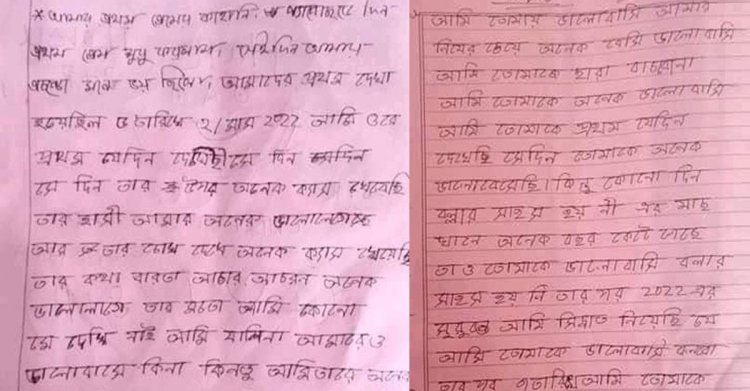 * আমার প্রথম প্রেমের কাহিনি,
প্রথম প্রেম শুরু করলাম, সেইদিন আমার
মনে ভয় ছিলো, আমাদের প্রথম দেখা
হয়েছিল ও তারিখে ২/মাস 2022 আমি ওরে
প্রথম যেদিন দেখেছি সে দিন যেদিন
সে দিন তার উপর অনেক ক্যাস খেয়েছি
তার হাসী আমার অনেক ভালোলেগেছে
আর তার চোখ দেখে অনেক ক্যাস খেয়েছি
তার কথা বারতা আচার আচরন অনেক
ভালোলাগে তার মতো আমি কোনো
মে দেখি নাই আমি যানিনা আমারে ও
ভালোবাসে কিনা কিনতু আমিতারে অনেক
আমি তোমায় ভালোবাসি আমার
নিযের চেয়ে অনেক বেসি ভালোবাসি
আমি তোমাকে ছারা বাচবোনা
আমি তোমাকে অনেক ভালোবাসি
আমি তোমাকে প্রথম যেদিন
দেখেছি সেদিন তোমাকে অনেক
ভালোবেসেছি। কিন্তু কোনো দিন
বল্লার সাহস হয় নী এর মাছ
খানে অনেক বছর কেটে গেছে
তা ও তোমাকে ভালোবাসি বলার
সাহস হয় নি তার পর 2022 এর
আমি সিদ্ধাত নিয়েছি যে
আমি তোমাকে ভালোবাসি বলবো
তার পর আমি তোমাকে